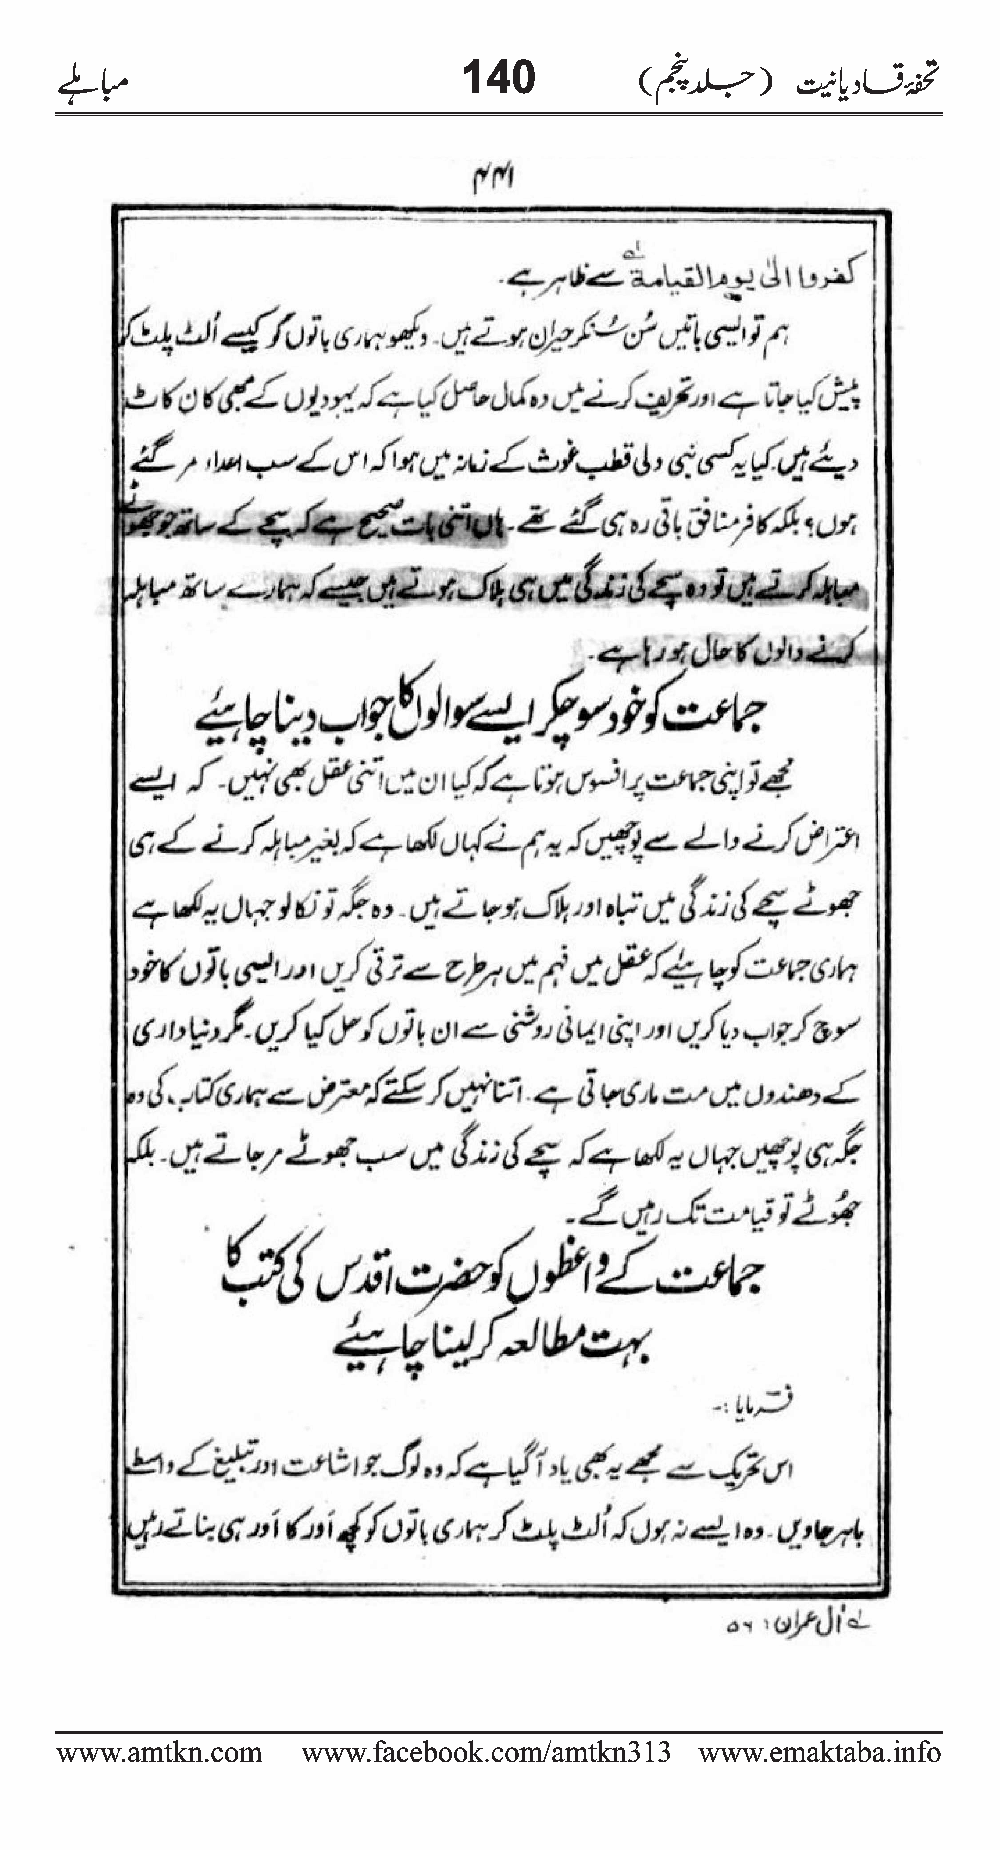 تحفۂ قادیانیت (جلد پنجم) 140 مباہلے
۴۴۱
کفروا الیٰ یوم القیامۃ لے سے ظاہر ہے۔
ہم تو ایسی باتیں سُن سُنکر حیران ہوتے ہیں۔ دیکھو ہماری باتوں کو کیسے اُلٹ پلٹ کر
پیش کیا جاتا ہے اور تحریف کرنے میں وہ کمال حاصل کیا ہے کہ یہودیوں کے بھی کان کاٹ
دیئے ہیں۔ کیا یہ کسی نبی ولی قطب غوث کے زمانہ میں ہوا کہ اس کے سب اعداء مر گئے
ہوں؟ بلکہ کافر منافق باقی رہ ہی گئے تھے۔ ہاں اتنی بات صحیح ہے کہ سچے کے ساتھ جو جھوٹے
مباہلہ کرتے ہیں تو وہ سچے کی زندگی میں ہی ہلاک ہوتے ہیں جیسے کہ ہمارے ساتھ مباہلہ
کرنے والوں کا حال ہو رہا ہے۔
جماعت کو خود سوچکر ایسے سوالوں کا جواب دینا چاہیئے
مجھے تو اپنی جماعت پر افسوس ہوتا ہے کہ کیا ان میں اتنی عقل بھی نہیں۔ کہ ایسے
اعتراض کرنے والے سے پوچھیں کہ یہ ہم نے کہاں لکھا ہے کہ بغیر مباہلہ کرنے کے ہی
جھوٹے سچے کی زندگی میں تباہ اور ہلاک ہو جاتے ہیں۔ وہ جگہ تو نکالو جہاں یہ لکھا ہے
ہماری جماعت کو چاہیئے کہ عقل میں فہم میں ہر طرح سے ترقی کریں اور ایسی باتوں کا خود
سوچ کر جواب دیا کریں اور اپنی ایمانی روشنی سے ان باتوں کو حل کیا کریں۔ مگر دنیا داری
کے دھندوں میں مت ماری جاتی ہے۔ اتنا نہیں کر سکتے کہ معترض سے ہماری کتاب کی وہ
جگہ ہی پوچھیں جہاں یہ لکھا ہے کہ سچے کی زندگی میں سب جھوٹے مر جاتے ہیں۔ بلکہ
جھُوٹے تو قیامت تک رہیں گے۔
جماعت کے واعظوں کو حضرت اقدس کی کتب کا
بہت مطالعہ کر لینا چاہیئے
فرمایا :۔
اس تحریک سے مجھے یہ بھی یاد آ گیا ہے کہ وہ لوگ جو اشاعت اور تبلیغ کے واسطے
باہر جاویں۔ وہ ایسے نہ ہوں کہ اُلٹ پلٹ کر ہماری باتوں کو کچھ اَور کا اَور ہی بناتے رہیں
لے آل عمران : ۵۶
www.amtkn.com www.facebook.com/amtkn313 www.emaktaba.info